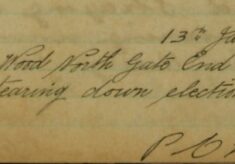 13th Ja
Wood North Gate End
tearing down electio
P C